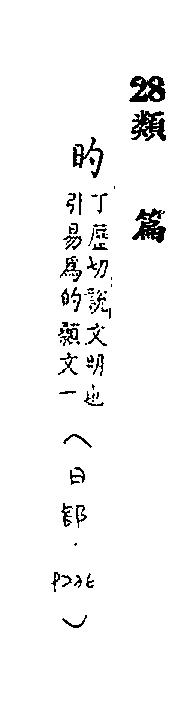 28類篇
旳
丁歷切說文明也
引易爲的顙文一
（日部．